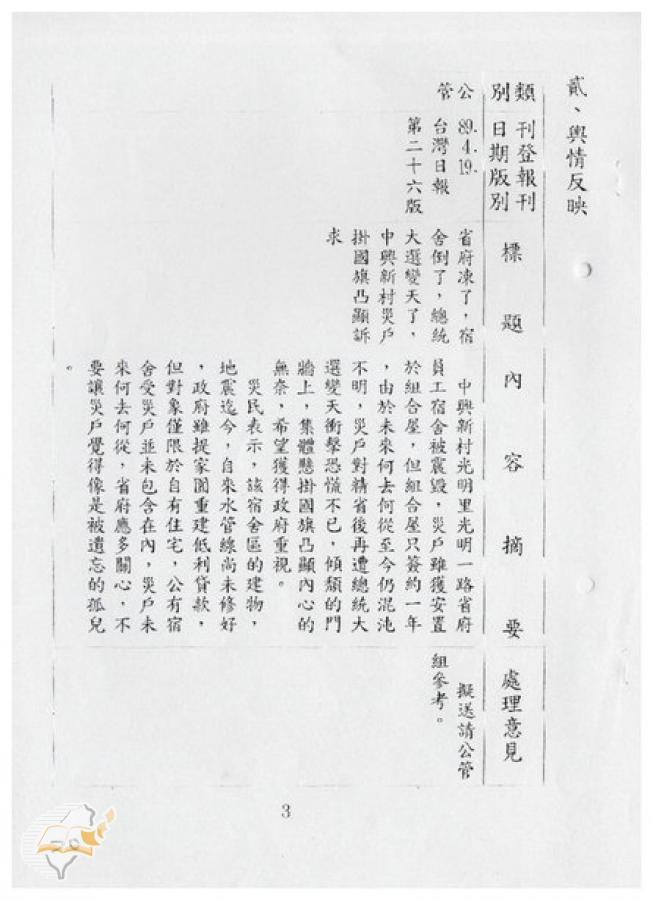 貳、輿情反映
類別
刊登報刊
日期版別
標題內容摘要
處理意見
公管
89.4.19.
台灣日報
第二十六版
省府凍了，宿
舍倒了，總統
大選變天了，
中興新村災戶
掛國旗凸顯訴
求
中興新村光明里光明一路省府
員工宿舍被震毀，災戶雖獲安置
於組合屋，但組合屋只簽約一年
，由於未來何去何從至今仍混沌
不明，災戶對精省後再遭總統大
選變天衝擊恐慌不已，傾頹的門
牆上，集體懸掛國旗凸顯內心的
無奈，希望獲得政府重視。
災民表示，該宿舍區的建物，
地震迄今，自來水管線尚未修好
，政府雖提家園重建低利貸款，
但對象僅限於自有住宅，公有宿
舍受災戶並未包含在內，災戶未
來何去何從，省府應多關心，不
要讓災戶覺得像是被遺忘的孤兒
。
擬送請公管
組參考。
3